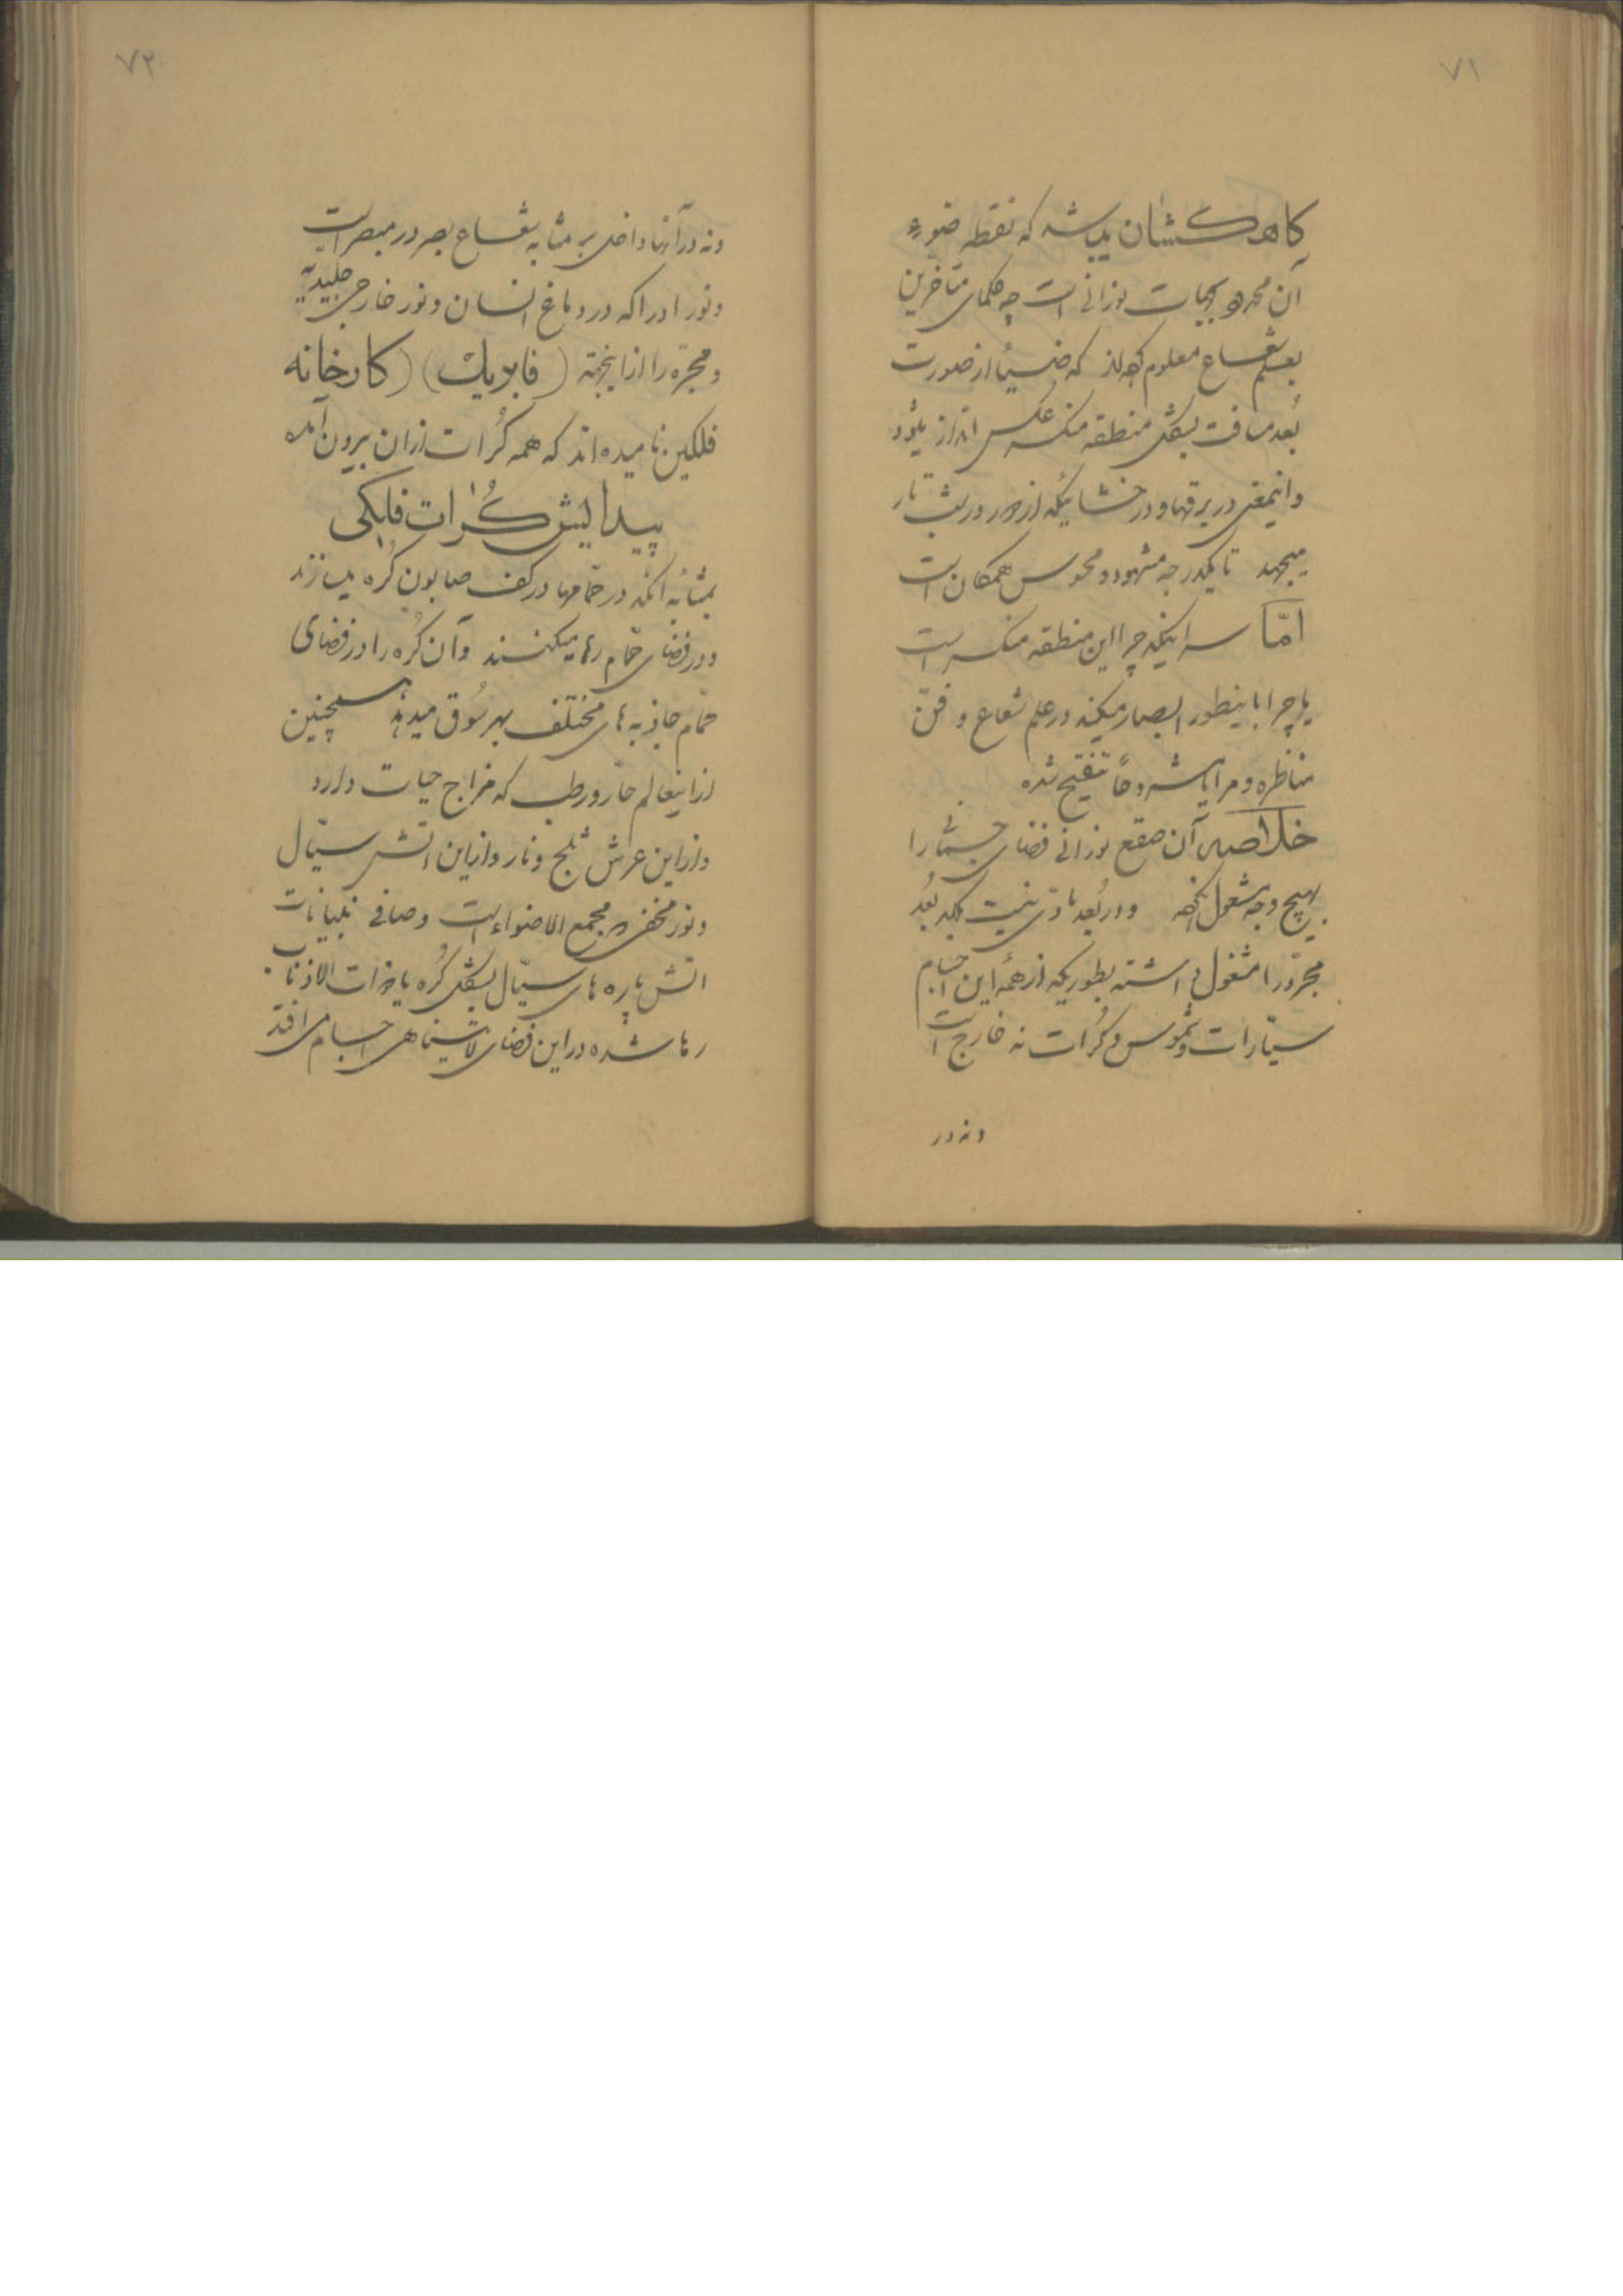 ۷۱
کاهکشان میباشد که نقطه ضوء
آن نورانی است چه حکمای متأخرین
بعلم شعاع معلوم که از صورت
بُعد مسافت بشکل منطقه منکسر عکس انداز میشود
واینمعنی در برقها و درخشانیکه از در شب تار
میجهد تا یکدرجه مشهود و محسوس همگان است
امّا سر اینکه چرا این منطقه منکسر است
یا چرا باینطور ابصار میکند در علم شعاع و فنّ
مناظره و مرایا مشروحاً تنقیح شده
خلاصه آن صقع نورانی فضای جسمانی را
بهیچ وجه مشغول نکرده و در بُعد مادّی نیست بلکه بُعد
مجرّد را مشغول داشته بطوریکه از همهٔ این اجسام
سیّارات و شموس و کُرات نه خارج است
و نه در
۷۲
و نه در آنها داخل بر مثابه شعاع بصر در مبصرات
و نور ادراکه در دماغ انسان و نور خارجی جلیدیّه
و مجرّه را از اینجهته (فابریک) (کارخانه
فلکین نامیده‌اند که همه کُرات از ان بیرون آمده
پیدایش کُرات فلکی
بمثابه انکه در حمّامها در کف صابون کُره میسازند
و در فضای حمّام رها میکنند و آن کُره را در فضای
حمّام جاذبه‌های مختلف بهر سُوق میدهد همچنین
از اینعالم حارّ و رطب که مزاج حیات دارد
و از این عرش ثلج و نار و از این اتش سیّال
و نور مجمع الاضواء است و صافی
اتش پاره‌های سیّال بشکل کُره یا ذوات الاذناب
رها شده در این فضای لایتناهی اجسام می افتد